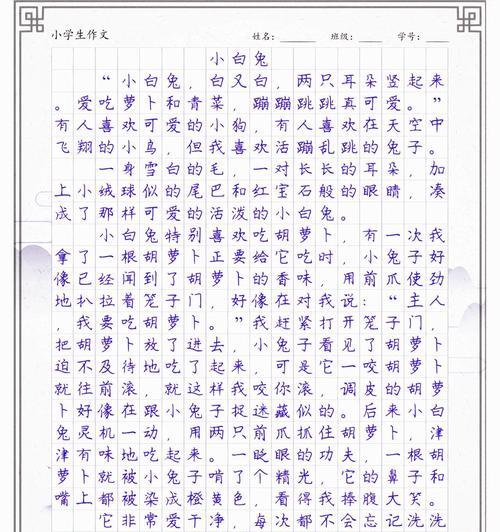 小学生作文 姓名: 班级: 学号:
小白兔
“小白兔，白又白，两只耳朵竖起来
。爱吃萝卜和青菜，蹦蹦跳跳真可爱。”
有人喜欢可爱的小狗，有人喜欢在天空中
飞翔的小鸟，但我喜欢活蹦乱跳的兔子。
一身雪白的毛，一对长长的耳朵，加
上小绒球似的尾巴和红宝石般的眼睛，凑
成了那样可爱的活泼的小白兔。
小白兔特别喜欢吃胡萝卜，有一次我
拿了一根胡萝卜正要给它吃时，小兔子好
像已经闻到了胡萝卜的香味，用前爪使劲
地扒拉着笼子门，好像在对我说：“主人
，我要吃胡萝卜。”我赶紧打开笼子门，
把胡萝卜放了进去，小兔子看见了胡萝卜
迫不及待地吃了起来，可是它一咬胡萝卜
就往前滚，就这样我咬你滚，调皮的胡萝
卜好像在跟小兔子捉迷藏似的。后来小白
兔灵机一动，用两只前爪抓住胡萝卜，津
津有味地吃起来。一眨眼的功夫，一根胡
萝卜就被小兔子啃了个精光，它的鼻子和
嘴上都被染成橙黄色，看得我捧腹大笑。
它非常爱干净，每次都不会忘记洗洗